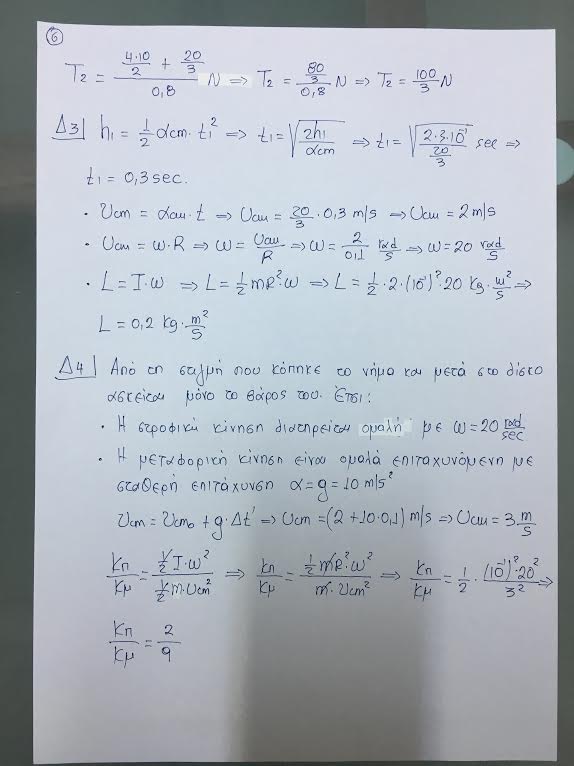 6
T₂ = (4·10/2 + 20/3)/0,8 N ⇒ T₂ = (80/3)/0,8 N ⇒ T₂ = 100/3 N
Δ3 h₁ = 1/2 αcm · t₁² ⇒ t₁ = √(2h₁/αcm) ⇒ t₁ = √(2·3·10⁻¹/(20/3)) sec ⇒
t₁ = 0,3 sec.
· Ucm = αcm · t ⇒ Ucm = 20/3 · 0,3 m/s ⇒ Ucm = 2 m/s
· Ucm = ω·R ⇒ ω = Ucm/R ⇒ ω = 2/0,1 rad/s ⇒ ω = 20 rad/s
· L = I·ω ⇒ L = 1/2 mR²ω ⇒ L = 1/2 · 2 · (10⁻¹)² · 20 Kg · m²/s ⇒
L = 0,2 Kg · m²/s
Δ4 Από τη στιγμή που κόπηκε το νήμα και μετά στο δίσκο
ασκείται μόνο το βάρος του. Έτσι:
· Η στροφική κίνηση διατηρείται ομαλή με ω = 20 rad/sec
· Η μεταφορική κίνηση είναι ομαλά επιταχυνόμενη με
σταθερή επιτάχυνση α = g = 10 m/s²
Ucm = Ucm₀ + g·Δt' ⇒ Ucm = (2 + 10·0,1) m/s ⇒ Ucm = 3 m/s
Kπ/Kμ = (1/2 I·ω²)/(1/2 m·Ucm²) ⇒ Kπ/Kμ = (1/2 mR²·ω²)/(m·Ucm²) ⇒ Kπ/Kμ = 1/2 · (10⁻¹)²·20²/3² ⇒
Kπ/Kμ = 2/9